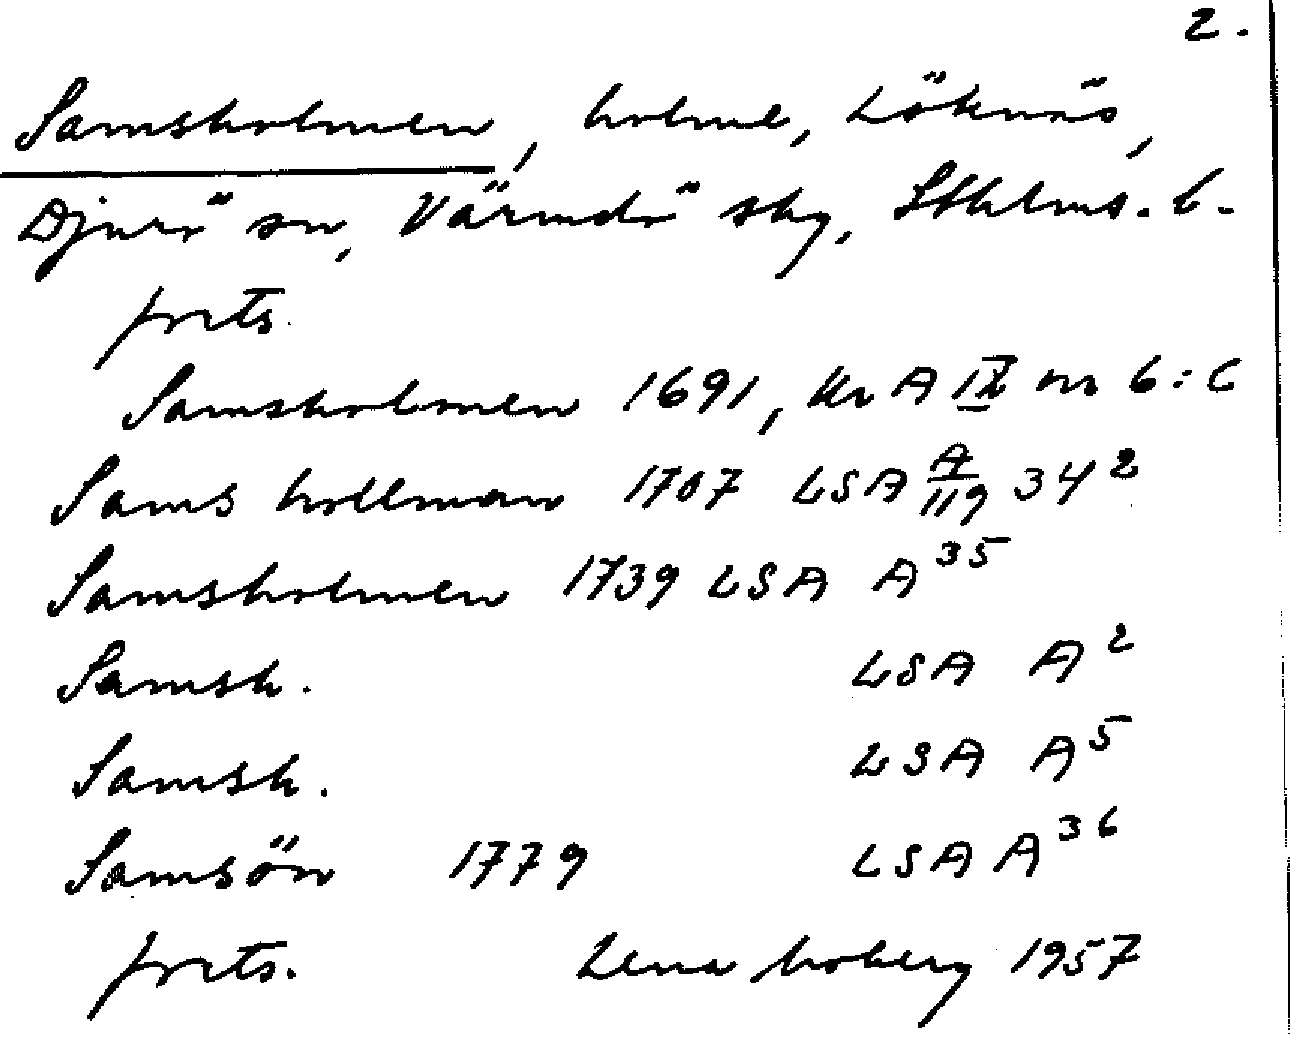 2.
Samsholmen, holme, Löknäs,
Djurö sn, Värmdö skg, Sthlms. l.
forts.
Samsholmen 1691, Kr A IX nr 6:6
Sams hollman 1707 LSA A/119 34²
Samsholmen 1739 LSA A³⁵
Samsh. LSA A²
Samsh. LSA A⁵
Samsön 1779 LSA A³⁶
forts. Lena Moberg 1957